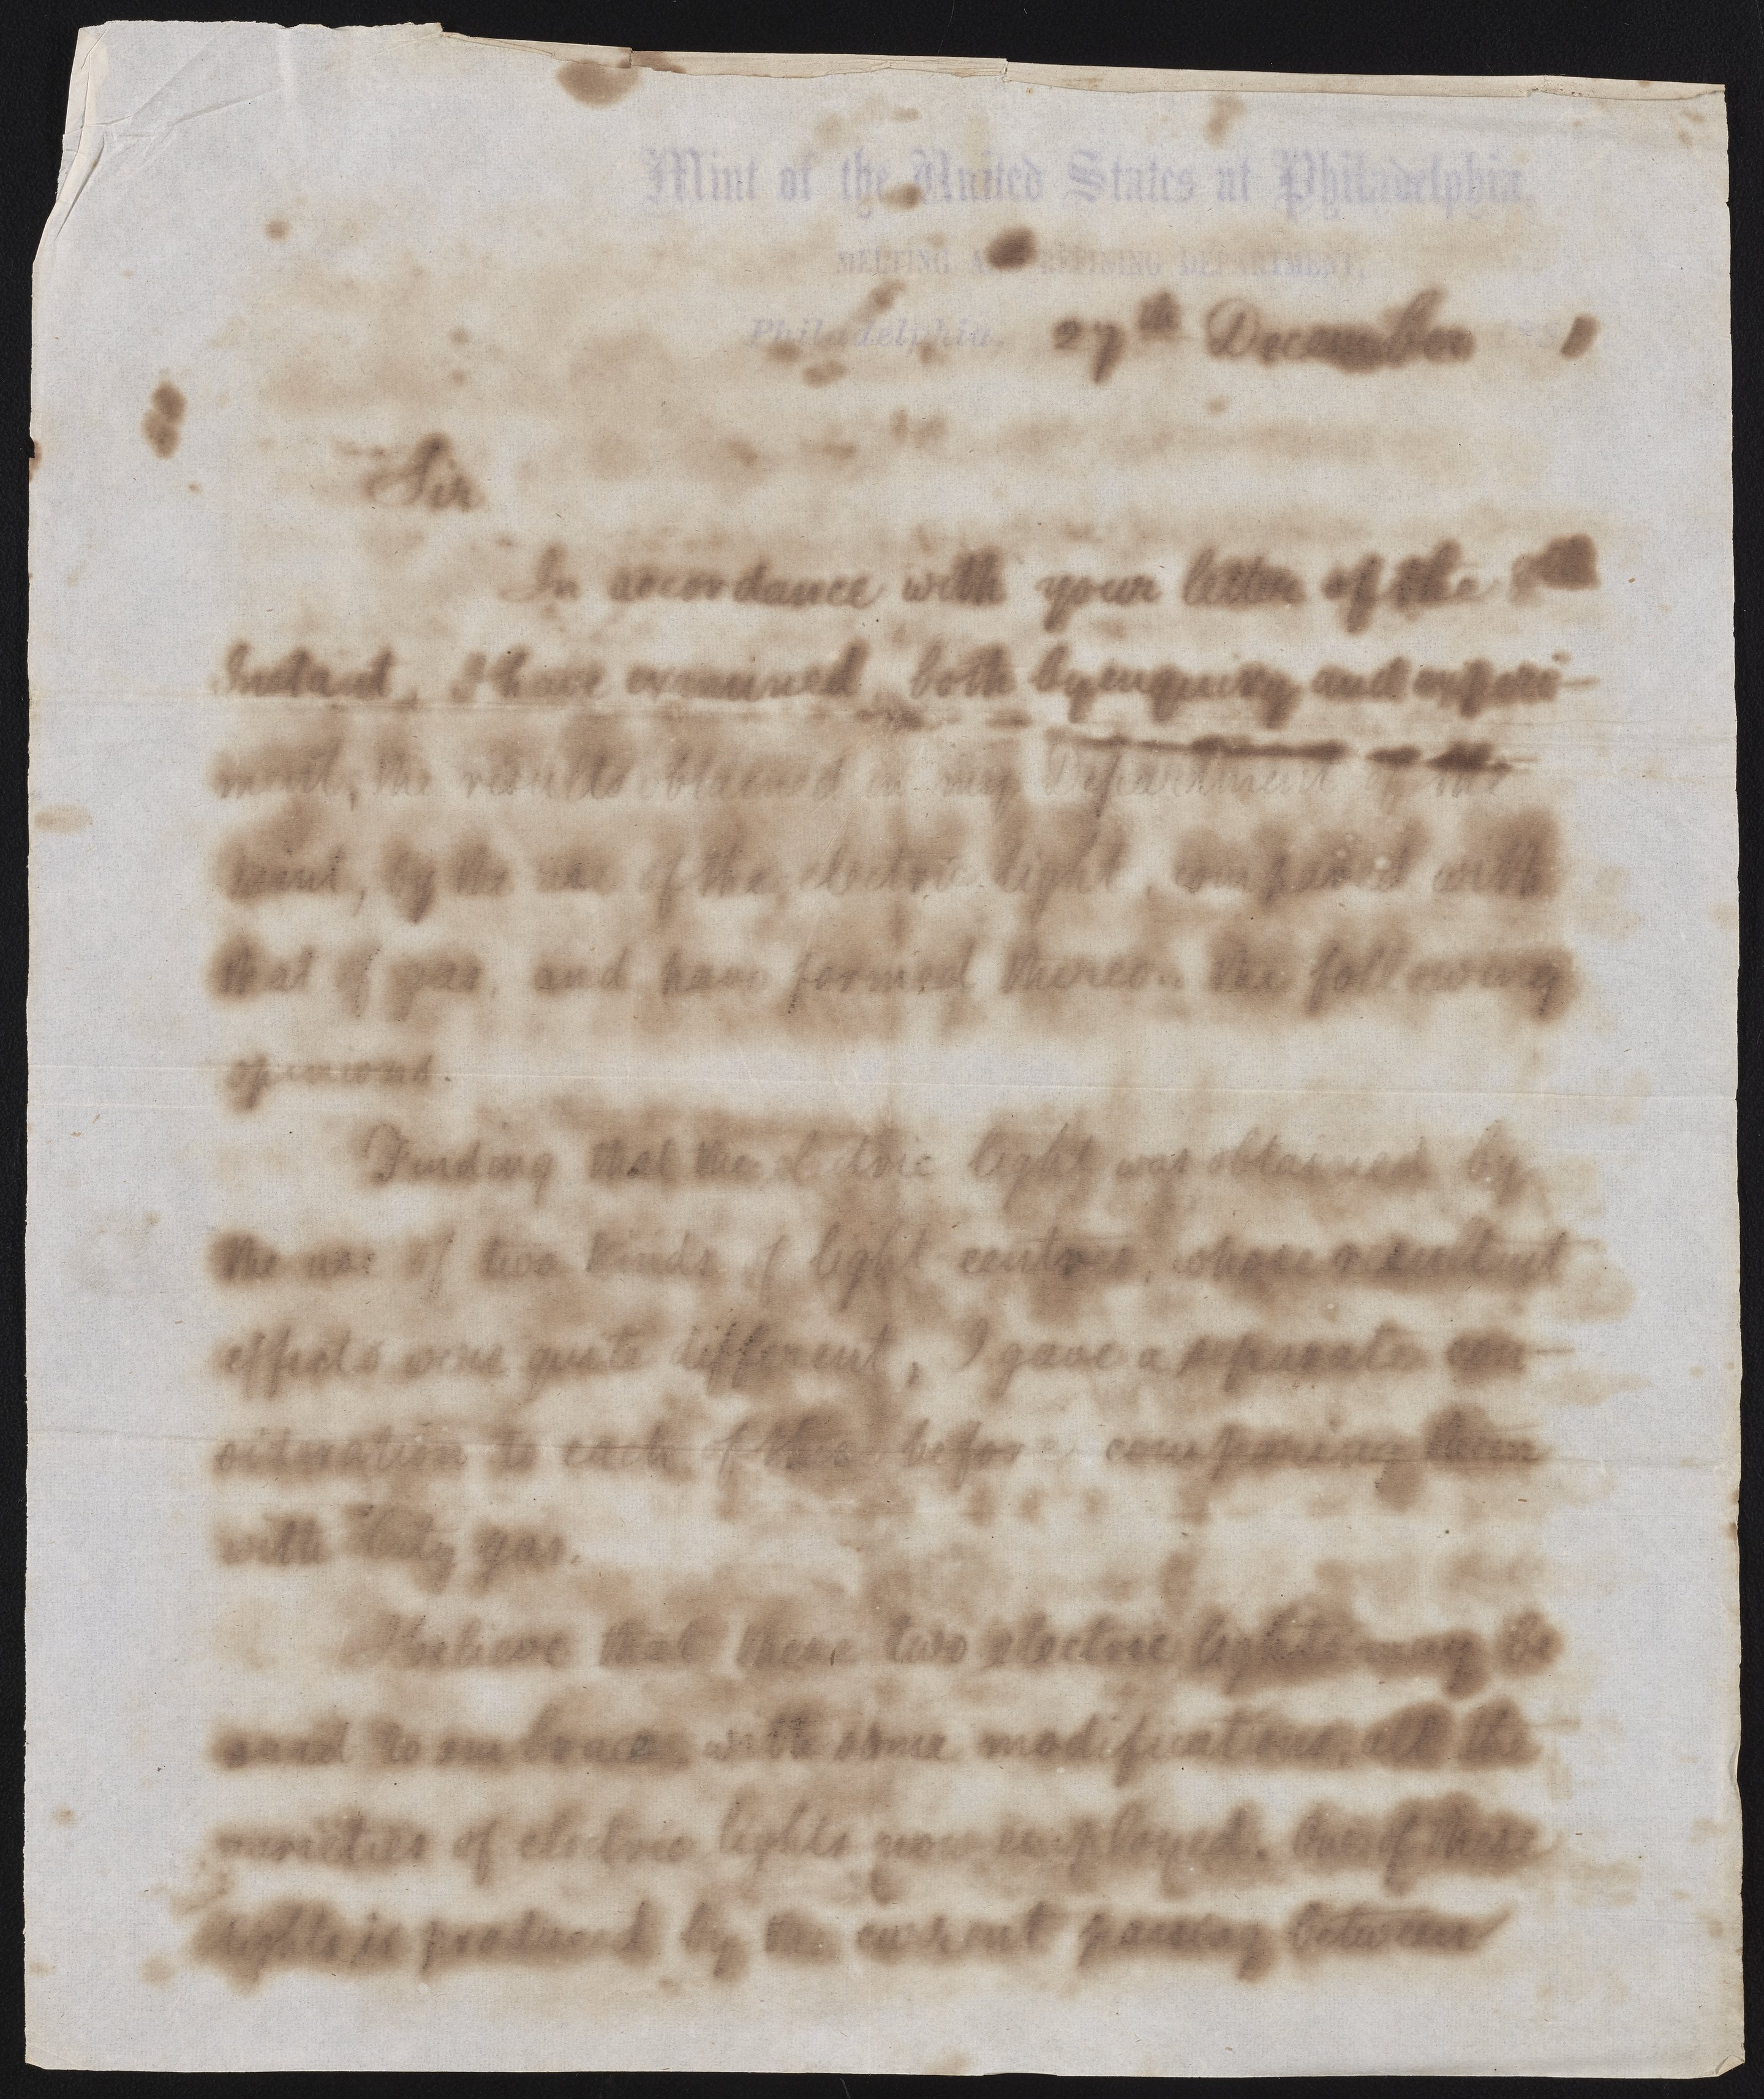 Mint of the United States at Philadelphia.
MELTING AND REFINING DEPARTMENT.
Philadelphia, 27th December 188
Sir
In accordance with your letter of the
Instant, I have examined, both by enquiry and experi-
ment, the results obtained in my Department of the
Mint, by the use of the electric light, compared with
that of gas, and have formed thereon the following
opinions.
Finding that the electric light was obtained by
the use of two kinds of light centres, whose resultant
effects were quite different, I gave a separate con-
sideration to each of these before comparing them
with City gas.
I believe that these two electric lights may be
said to embrace, with some modifications, all the
varieties of electric lights now employed. One of these
lights is produced by the current passing between